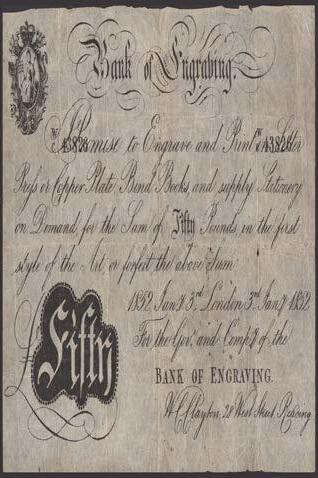 Bank of Engraving.
I Promise to Engrave and Print in Letter
Press or Copper Plate, Bond Books, and supply Stationery
on Demand for the Sum of Fifty Pounds, in the first
style of the Art or forfeit the above Sum
1832 Jany 3rd London 3rd Jany 1832
For the Govr and Compy of the
BANK OF ENGRAVING.
£ Fifty
W. C. Clayton, 28 West Street Reading